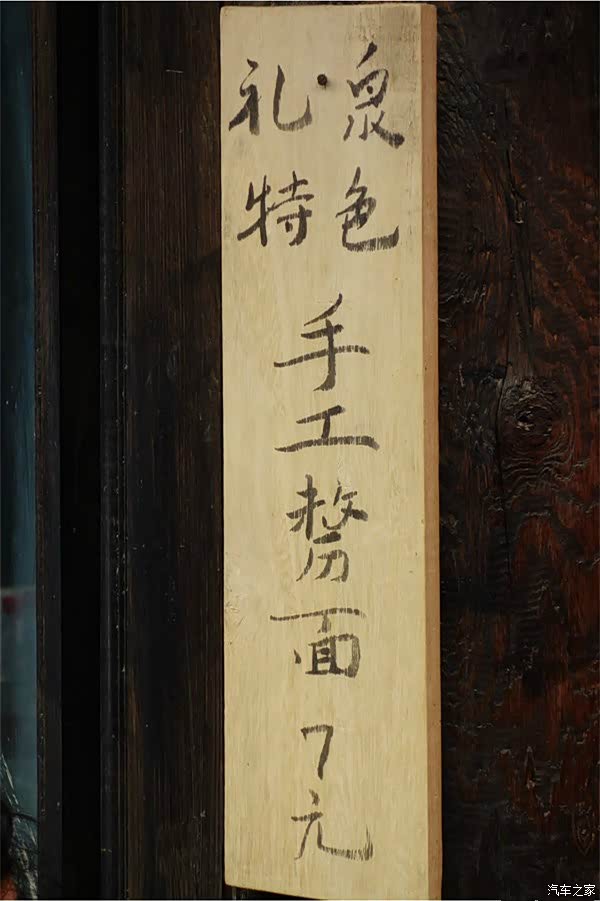 礼泉
特色
手工剺面7元
汽车之家